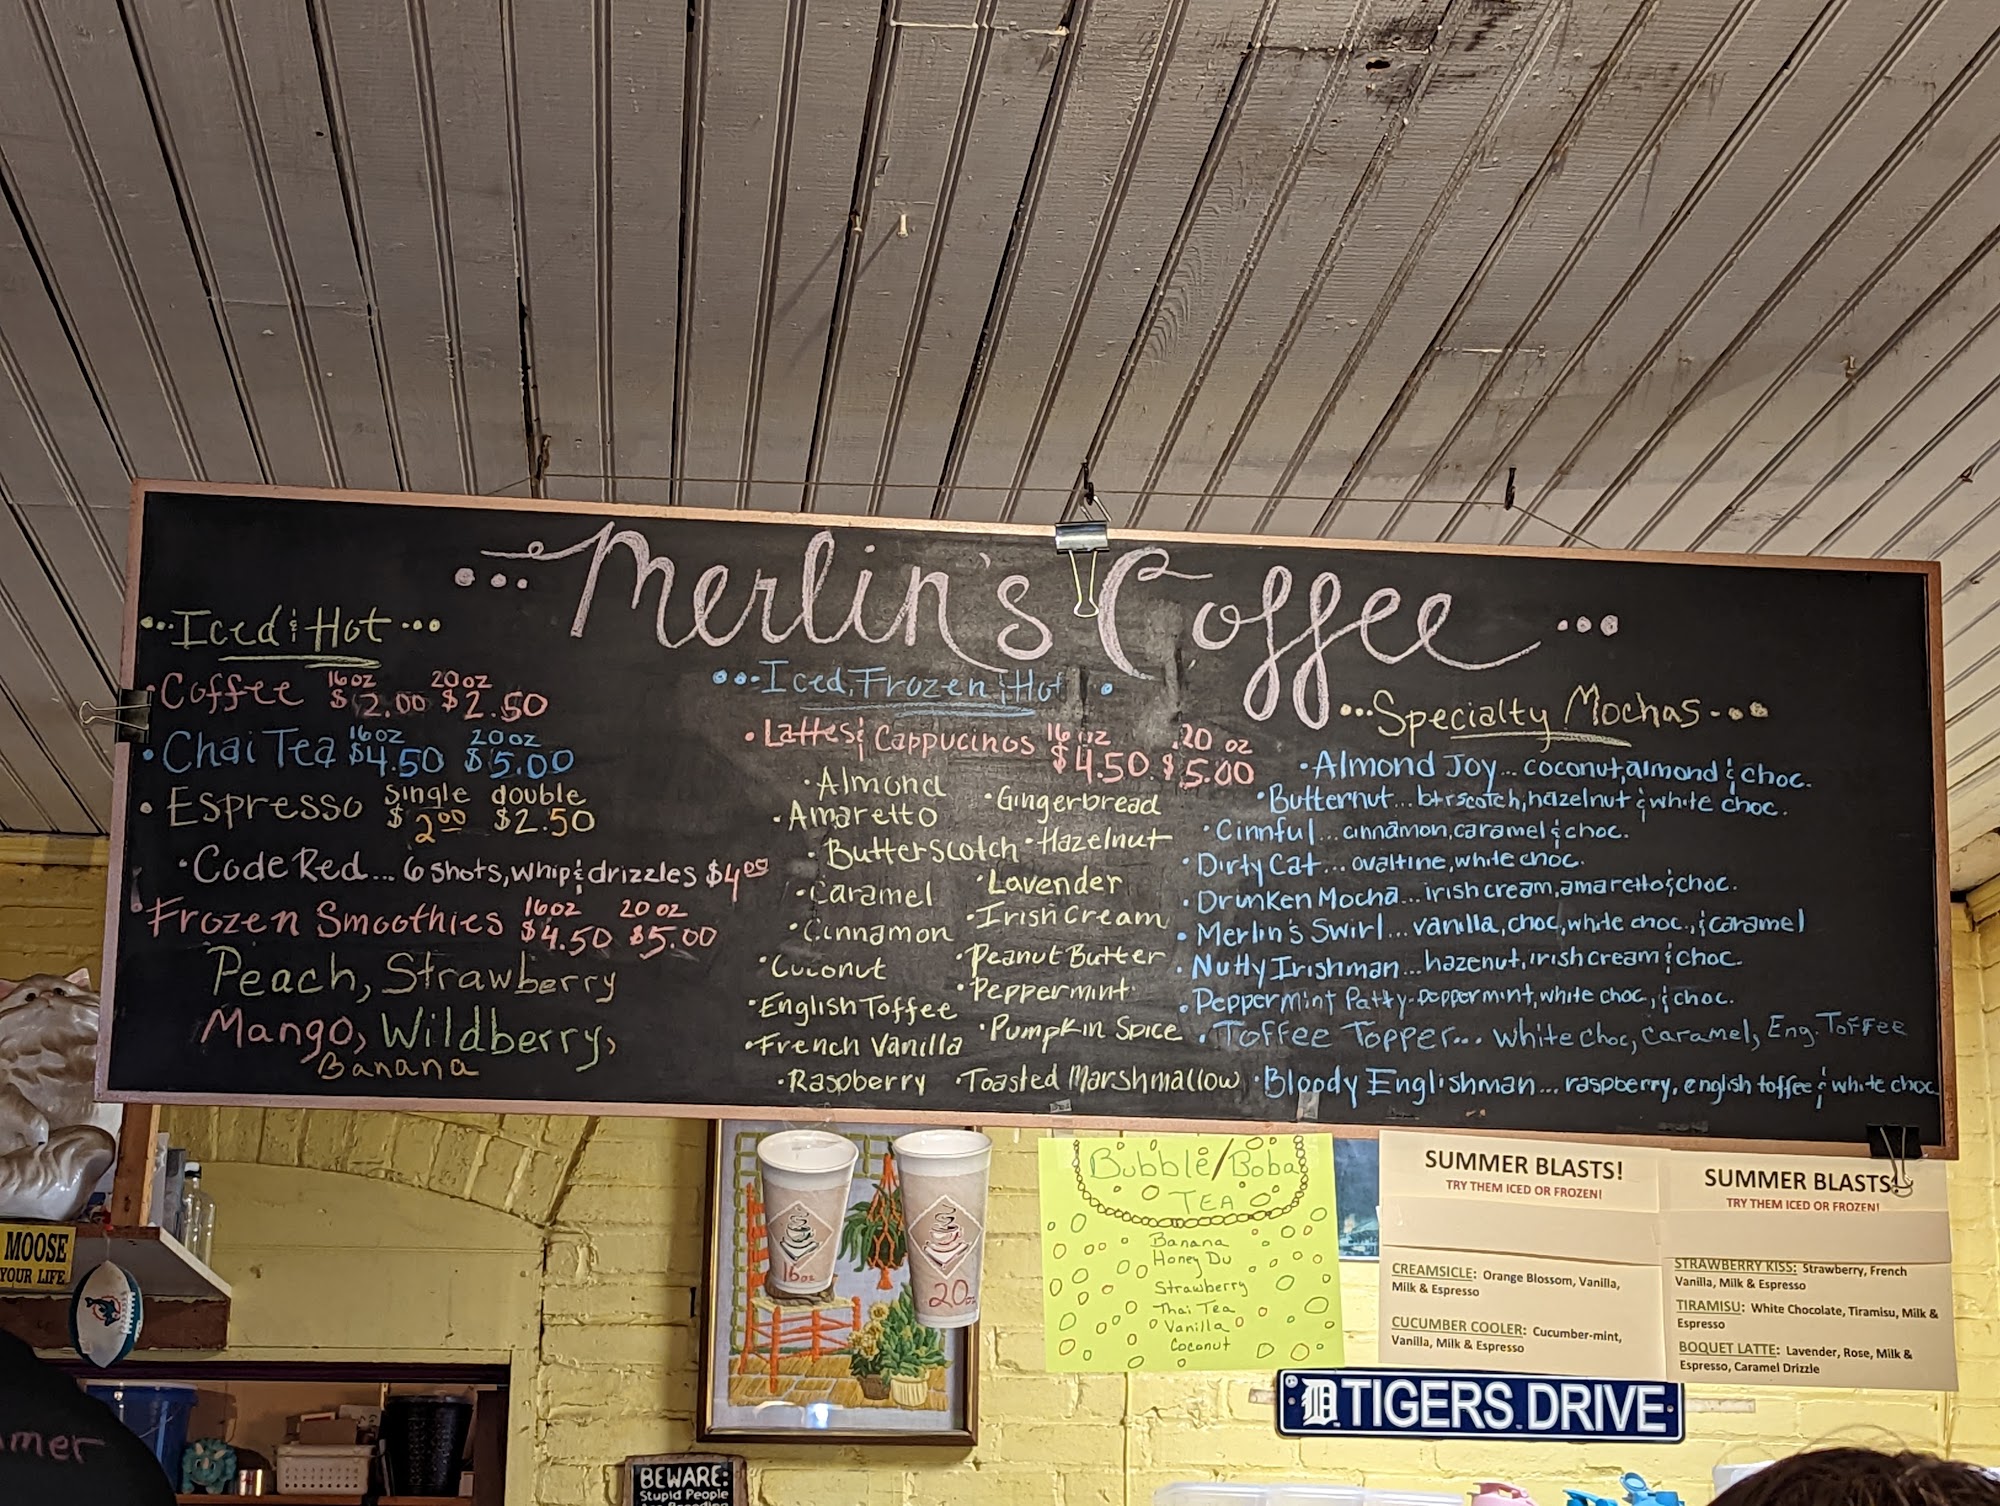 Merlin's Coffee
Iced & Hot
Coffee 16oz $2.00 20oz $2.50
Chai Tea 16oz $4.50 20oz $5.00
Espresso single $2.00 double $2.50
Code Red... 6 shots, whip & drizzles $4.00
Frozen Smoothies 16oz $4.50 20oz $5.00
Peach, Strawberry
Mango, Wildberry,
Banana
Iced, Frozen & Hot
Lattes & Cappucinos 16oz $4.50 20oz $5.00
Almond
Amaretto
Butterscotch
Caramel
Cinnamon
Coconut
English Toffee
French Vanilla
Raspberry
Gingerbread
Hazelnut
Lavender
Irish Cream
Peanut Butter
Peppermint
Pumpkin Spice
Toasted Marshmallow
Specialty Mochas
Almond Joy... coconut, almond & choc.
Butternut... btrscotch, hazelnut & white choc.
Cinnful... cinnamon, caramel & choc.
Dirty Cat... ovaltine, white choc.
Drunken Mocha... irish cream, amaretto & choc.
Merlin's Swirl... vanilla, choc, white choc., & caramel
Nutty Irishman... hazenut, irish cream & choc.
Peppermint Patty- peppermint, white choc, & choc.
Toffee Topper... white choc, caramel, Eng. Toffee
Bloody Englishman... raspberry, english toffee & white choc
16oz
20oz
Bubble/Boba
Tea
Banana
Honey Du
Strawberry
Thai Tea
Vanilla
Coconut
SUMMER BLASTS!
TRY THEM ICED OR FROZEN!
CREAMSICLE: Orange Blossom, Vanilla,
Milk & Espresso
CUCUMBER COOLER: Cucumber-mint,
Vanilla, Milk & Espresso
SUMMER BLASTS!
TRY THEM ICED OR FROZEN!
STRAWBERRY KISS: Strawberry, French
Vanilla, Milk & Espresso
TIRAMISU: White Chocolate, Tiramisu, Milk &
Espresso
BOQUET LATTE: Lavender, Rose, Milk &
Espresso, Caramel Drizzle
D TIGERS DRIVE
MOOSE
YOUR LIFE
BEWARE:
Stupid People